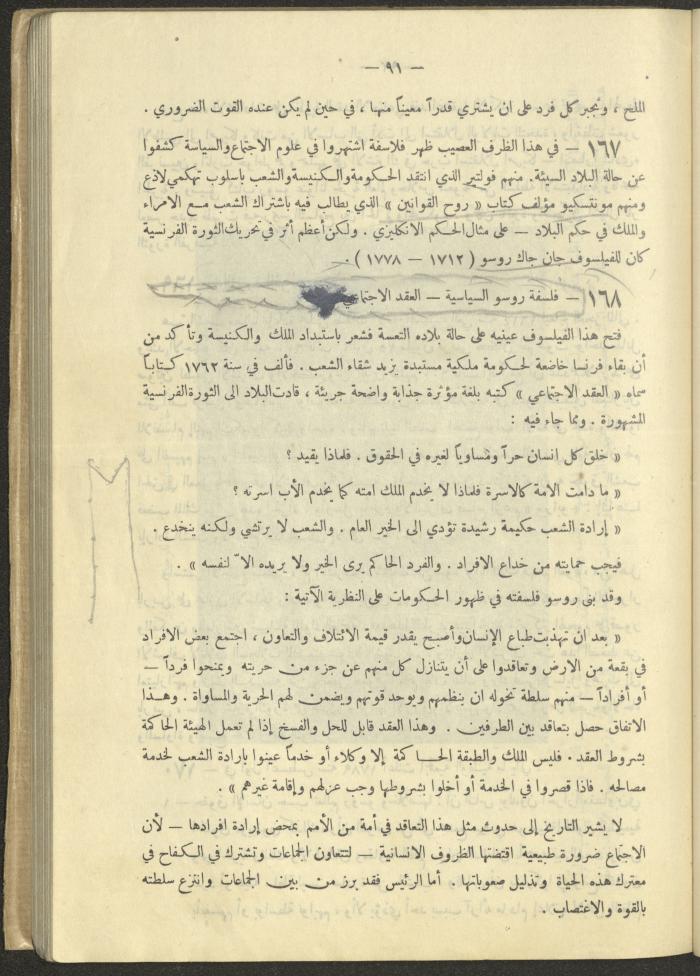 — ٩١ —
الملح ، وتجبر كل فرد على ان يشتري قدراً معيناً منها ، في حين لم يكن عنده القوت الضروري .
١٦٧ — في هذا الظرف العصيب ظهر فلاسفة اشتهروا في علوم الاجتماع والسياسة كشفوا
عن حالة البلاد السيئة . منهم فولتير الذي انتقد الحكومة والكنيسة والشعب باسلوب تهكمي لاذع
ومنهم مونتسكيو مؤلف كتاب « روح القوانين » الذي يطالب فيه باشتراك الشعب مع الامراء
والملك في حكم البلاد — على مثال الحكم الانكليزي . ولكن أعظم أثر في تحريك الثورة الفرنسية
كان للفيلسوف جان جاك روسو ( ١٧١٢ — ١٧٧٨ ) .
١٦٨ — فلسفة روسو السياسية — العقد الاجتماعي
فتح هذا الفيلسوف عينيه على حالة بلاده التعسة فشعر باستبداد الملك والكنيسة وتأكد من
أن بقاء فرنسا خاضعة لحكومة ملكية مستبدة يزيد شقاء الشعب . فألف في سنة ١٧٦٢ كتاباً
سماه « العقد الاجتماعي » كتبه بلغة مؤثرة جذابة واضحة جريئة ، قادت البلاد الى الثورة الفرنسية
المشهورة . ومما جاء فيه :
« خلق كل انسان حراً ومساوياً لغيره في الحقوق . فلماذا يقيد ؟
« ما دامت الامة كالاسرة فلماذا لا يخدم الملك امته كما يخدم الأب اسرته ؟
« إرادة الشعب حكيمة رشيدة تؤدي الى الخير العام . والشعب لا يرتشي ولكنه ينخدع .
فيجب حمايته من خداع الافراد . والفرد الحاكم يرى الخير ولا يريده الاّ لنفسه » .
وقد بنى روسو فلسفته في ظهور الحكومات على النظرية الآتية :
« بعد ان تهذبت طباع الإنسان وأصبح يقدر قيمة الائتلاف والتعاون ، اجتمع بعض الافراد
في بقعة من الارض وتعاقدوا على أن يتنازل كل منهم عن جزء من حريته ويمنحوا فرداً —
أو أفراداً — منهم سلطة تخوله ان ينظمهم ويوحد قوتهم ويضمن لهم الحرية والمساواة . وهذا
الاتفاق حصل بتعاقد بين الطرفين . وهذا العقد قابل للحل والفسخ إذا لم تعمل الهيئة الحاكمة
بشروط العقد . فليس الملك والطبقة الحاكمة إلا وكلاء أو خدماً عينوا بارادة الشعب لخدمة
مصالحه . فاذا قصروا في الخدمة أو أخلوا بشروطها وجب عزلهم وإقامة غيرهم » .
لا يشير التاريخ إلى حدوث مثل هذا التعاقد في أمة من الأمم بمحض إرادة افرادها — لأن
الاجتماع ضرورة طبيعية اقتضتها الظروف الانسانية — لتتعاون الجماعات وتشترك في الكفاح في
معترك هذه الحياة وتذليل صعوباتها . أما الرئيس فقد برز من بين الجماعات وانتزع سلطته
بالقوة والاغتصاب .